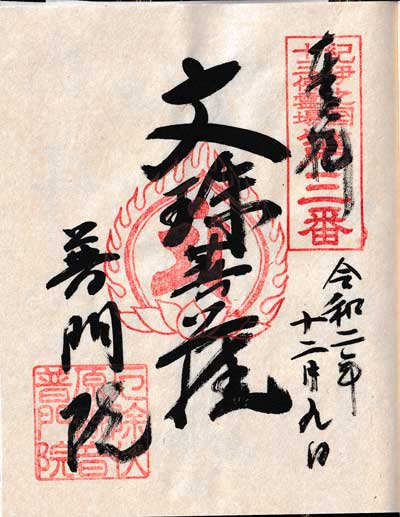 奉拝
紀伊之国
十三佛霊場
第三番
文珠菩薩
令和二年
十二月九日
普門院
普門院